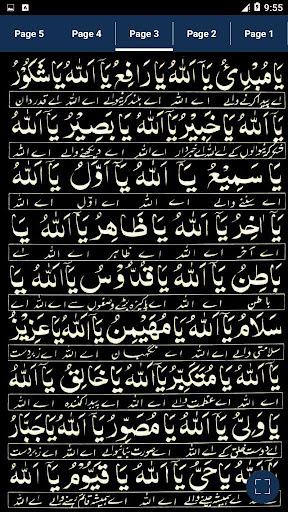 9:55
Page 5 Page 4 Page 3 Page 2 Page 1
يَا مُبْدِئُ يَا اَللهُ يَا رَافِعُ يَا اَللهُ يَا شَكُوْرُ
اے پیدا کرنے والے اے اللہ اے بلند کرنیوالے اے اللہ اے قدردان
يَا اَللهُ يَا خَبِيْرُ يَا اَللهُ يَا بَصِيْرُ يَا اَللهُ
اے اللہ اے دیکھنے والے اے اللہ
يَا سَمِيْعُ يَا اَللهُ يَا اَوَّلُ يَا اَللهُ
اے سننے والے اے اللہ اے اوّل اے اللہ
يَا اٰخِرُ يَا اَللهُ يَا ظَاهِرُ يَا اَللهُ يَا
اے آخر اے اللہ اے ظاہر اے اللہ اے
بَاطِنُ يَا اَللهُ يَا قُدُّوْسُ يَا اَللهُ يَا
باطن اے اللہ اے پاکیزہ اے اللہ اے
سَلَامُ يَا اَللهُ يَا مُهَيْمِنُ يَا اَللهُ يَا عَزِيْزُ
سلامتی والے اے اللہ اے نگہبان اے اللہ اے زبردست
يَا اَللهُ يَا مُتَكَبِّرُ يَا اَللهُ يَا خَالِقُ يَا اَللهُ
اے اللہ اے عظمت والے اے اللہ اے پیدا کنندہ اے اللہ
يَا وَلِيُّ يَا اَللهُ يَا مُصَوِّرُ يَا اَللهُ يَا جَبَّارُ
اے اللہ اے صورت بنانیوالے اے اللہ اے زبردست
يَا اَللهُ يَا حَيُّ يَا اَللهُ يَا قَيُّوْمُ يَا اَللهُ
اے اللہ اے ہمیشہ جینے والے اے اللہ اے ہمیشہ قائم رہنے والے اے اللہ